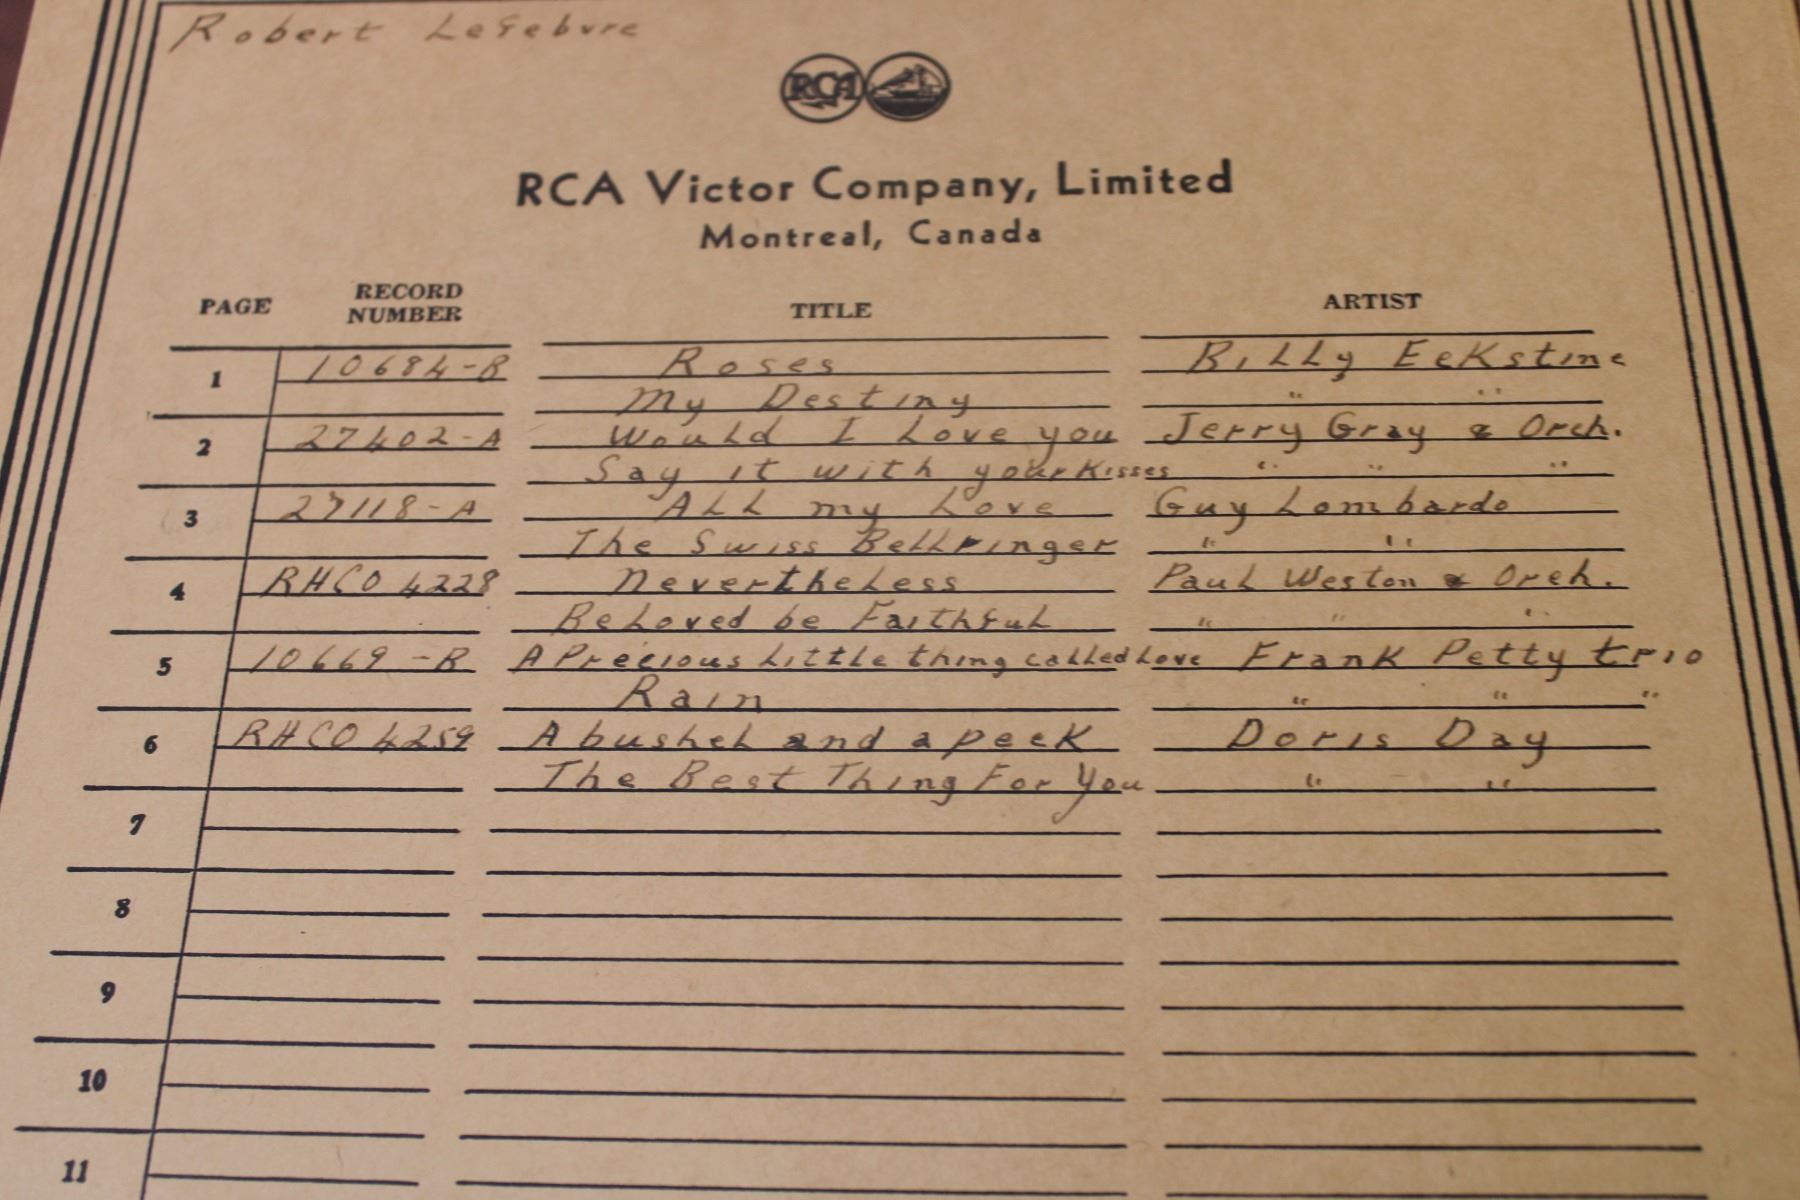 Robert Lefebvre
RCA
RCA Victor Company, Limited
Montreal, Canada
PAGE RECORD NUMBER TITLE ARTIST
1 10684-B Roses Billy Eckstine
My Destiny " "
2 27402-A Would I Love you Jerry Gray & Orch.
Say it with your Kisses " " "
3 27118-A ALL my Love Guy Lombardo
The Swiss Bellringer " "
4 RHCO 4228 Nevertheless Paul Weston & Orch.
Beloved be Faithful " " "
5 10669-B A Precious Little thing called Love Frank Petty trio
Rain " " "
6 RHCO 4259 A bushel and a peck Doris Day
The Best Thing For You " "
7
8
9
10
11